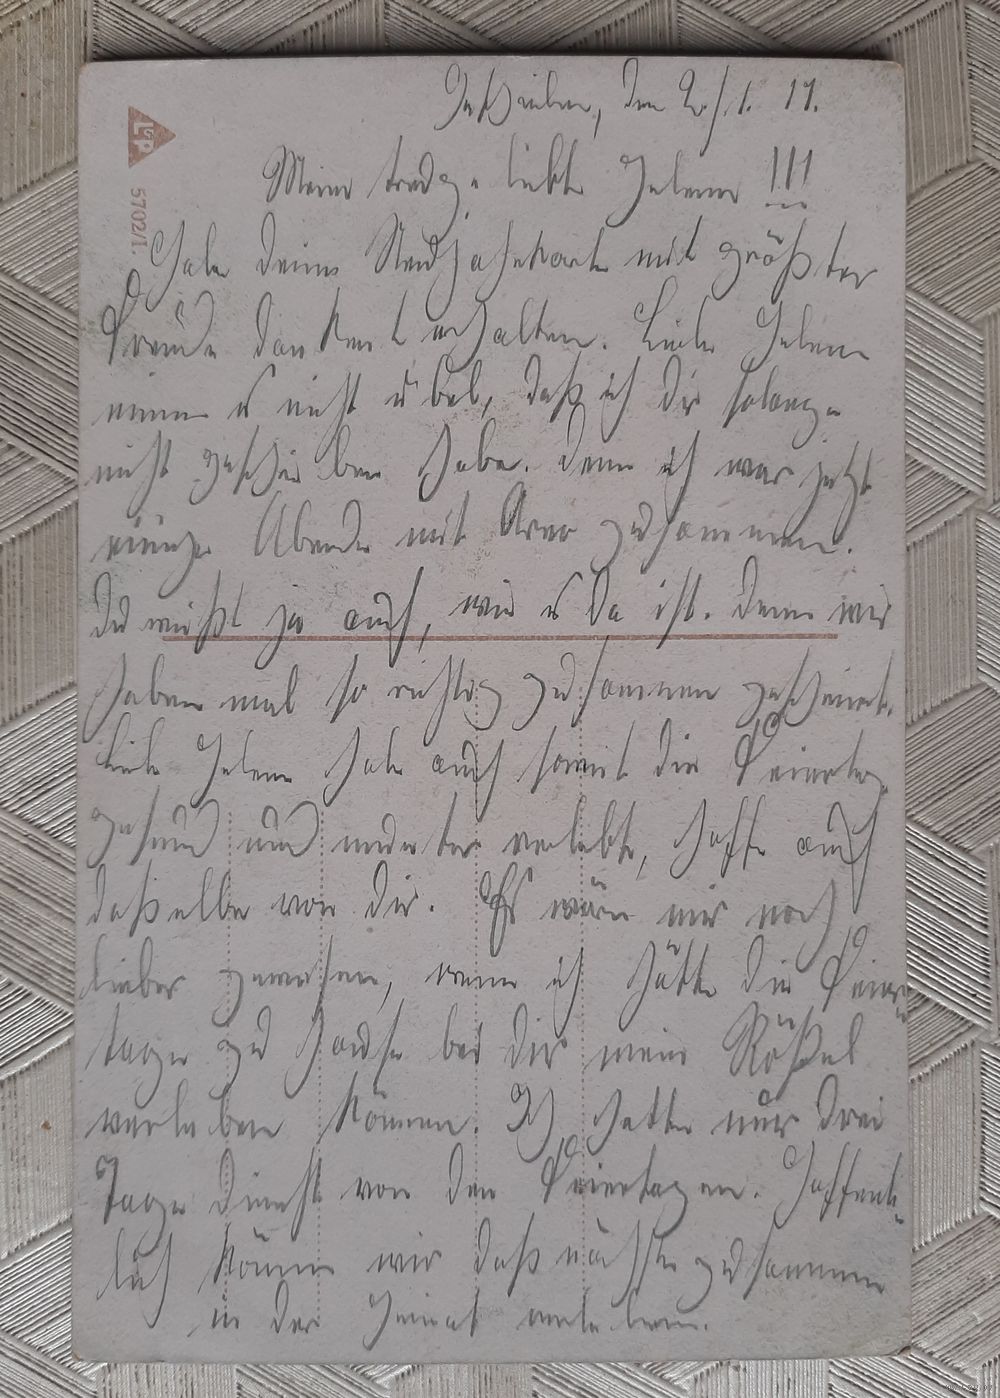 Geschrieben, den 2./1. 17.
Meine treugeliebte Helene !!!
Habe deine Neujahrskarte mit größter
Freude dankent erhalten. Liebe Helene
nimm es nicht übel, daß ich dir solange
nicht geschrieben habe. Denn ich war jetzt
einige Abende mit zusammen.
Du weißt ja auch, wie es da ist. Denn wir
haben mal so richtig zusammen gefeiert.
Liebe Helene habe auch somit die Feiertage
gesund und munter verlebt, hoffe auch
daßelbe von dir. Es wäre mir noch
lieber gewesen, wenn ich hätte die Feier-
tage zu Hause bei dir mein
verleben können. Ich hatte nur drei
Tage Dienst von den Feiertagen. Hoffent-
lich können wir daß nächste zusammen
in der Heimat verleben.
LP
5702/1.